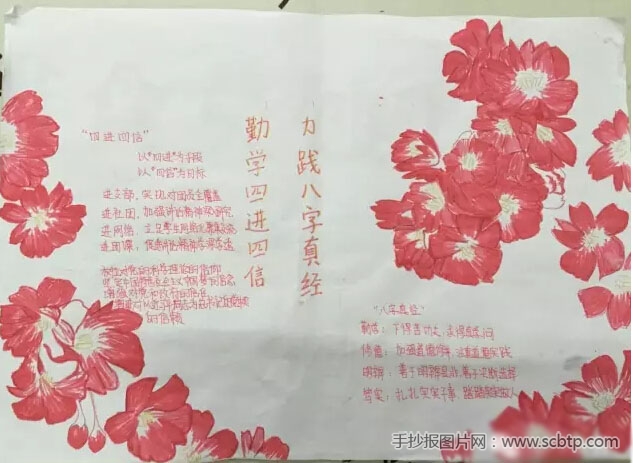 力践八字真经
勤学四进四信
"四进四信"
以"四进"为手段
以"四信"为目标
进支部,实现对团员全覆盖
进社团,加强讲话精神
进网络,立足学生网络
进团课,
的信仰
的信念
的信赖
"八字真经"
勤学:下得苦功夫,求得真学问
修德:加强道德修养,注重道德实践
明辨:善于明辨是非,善于决断选择
笃实:扎扎实实干事,踏踏实实做人
手抄报图片网:www.scbtp.com